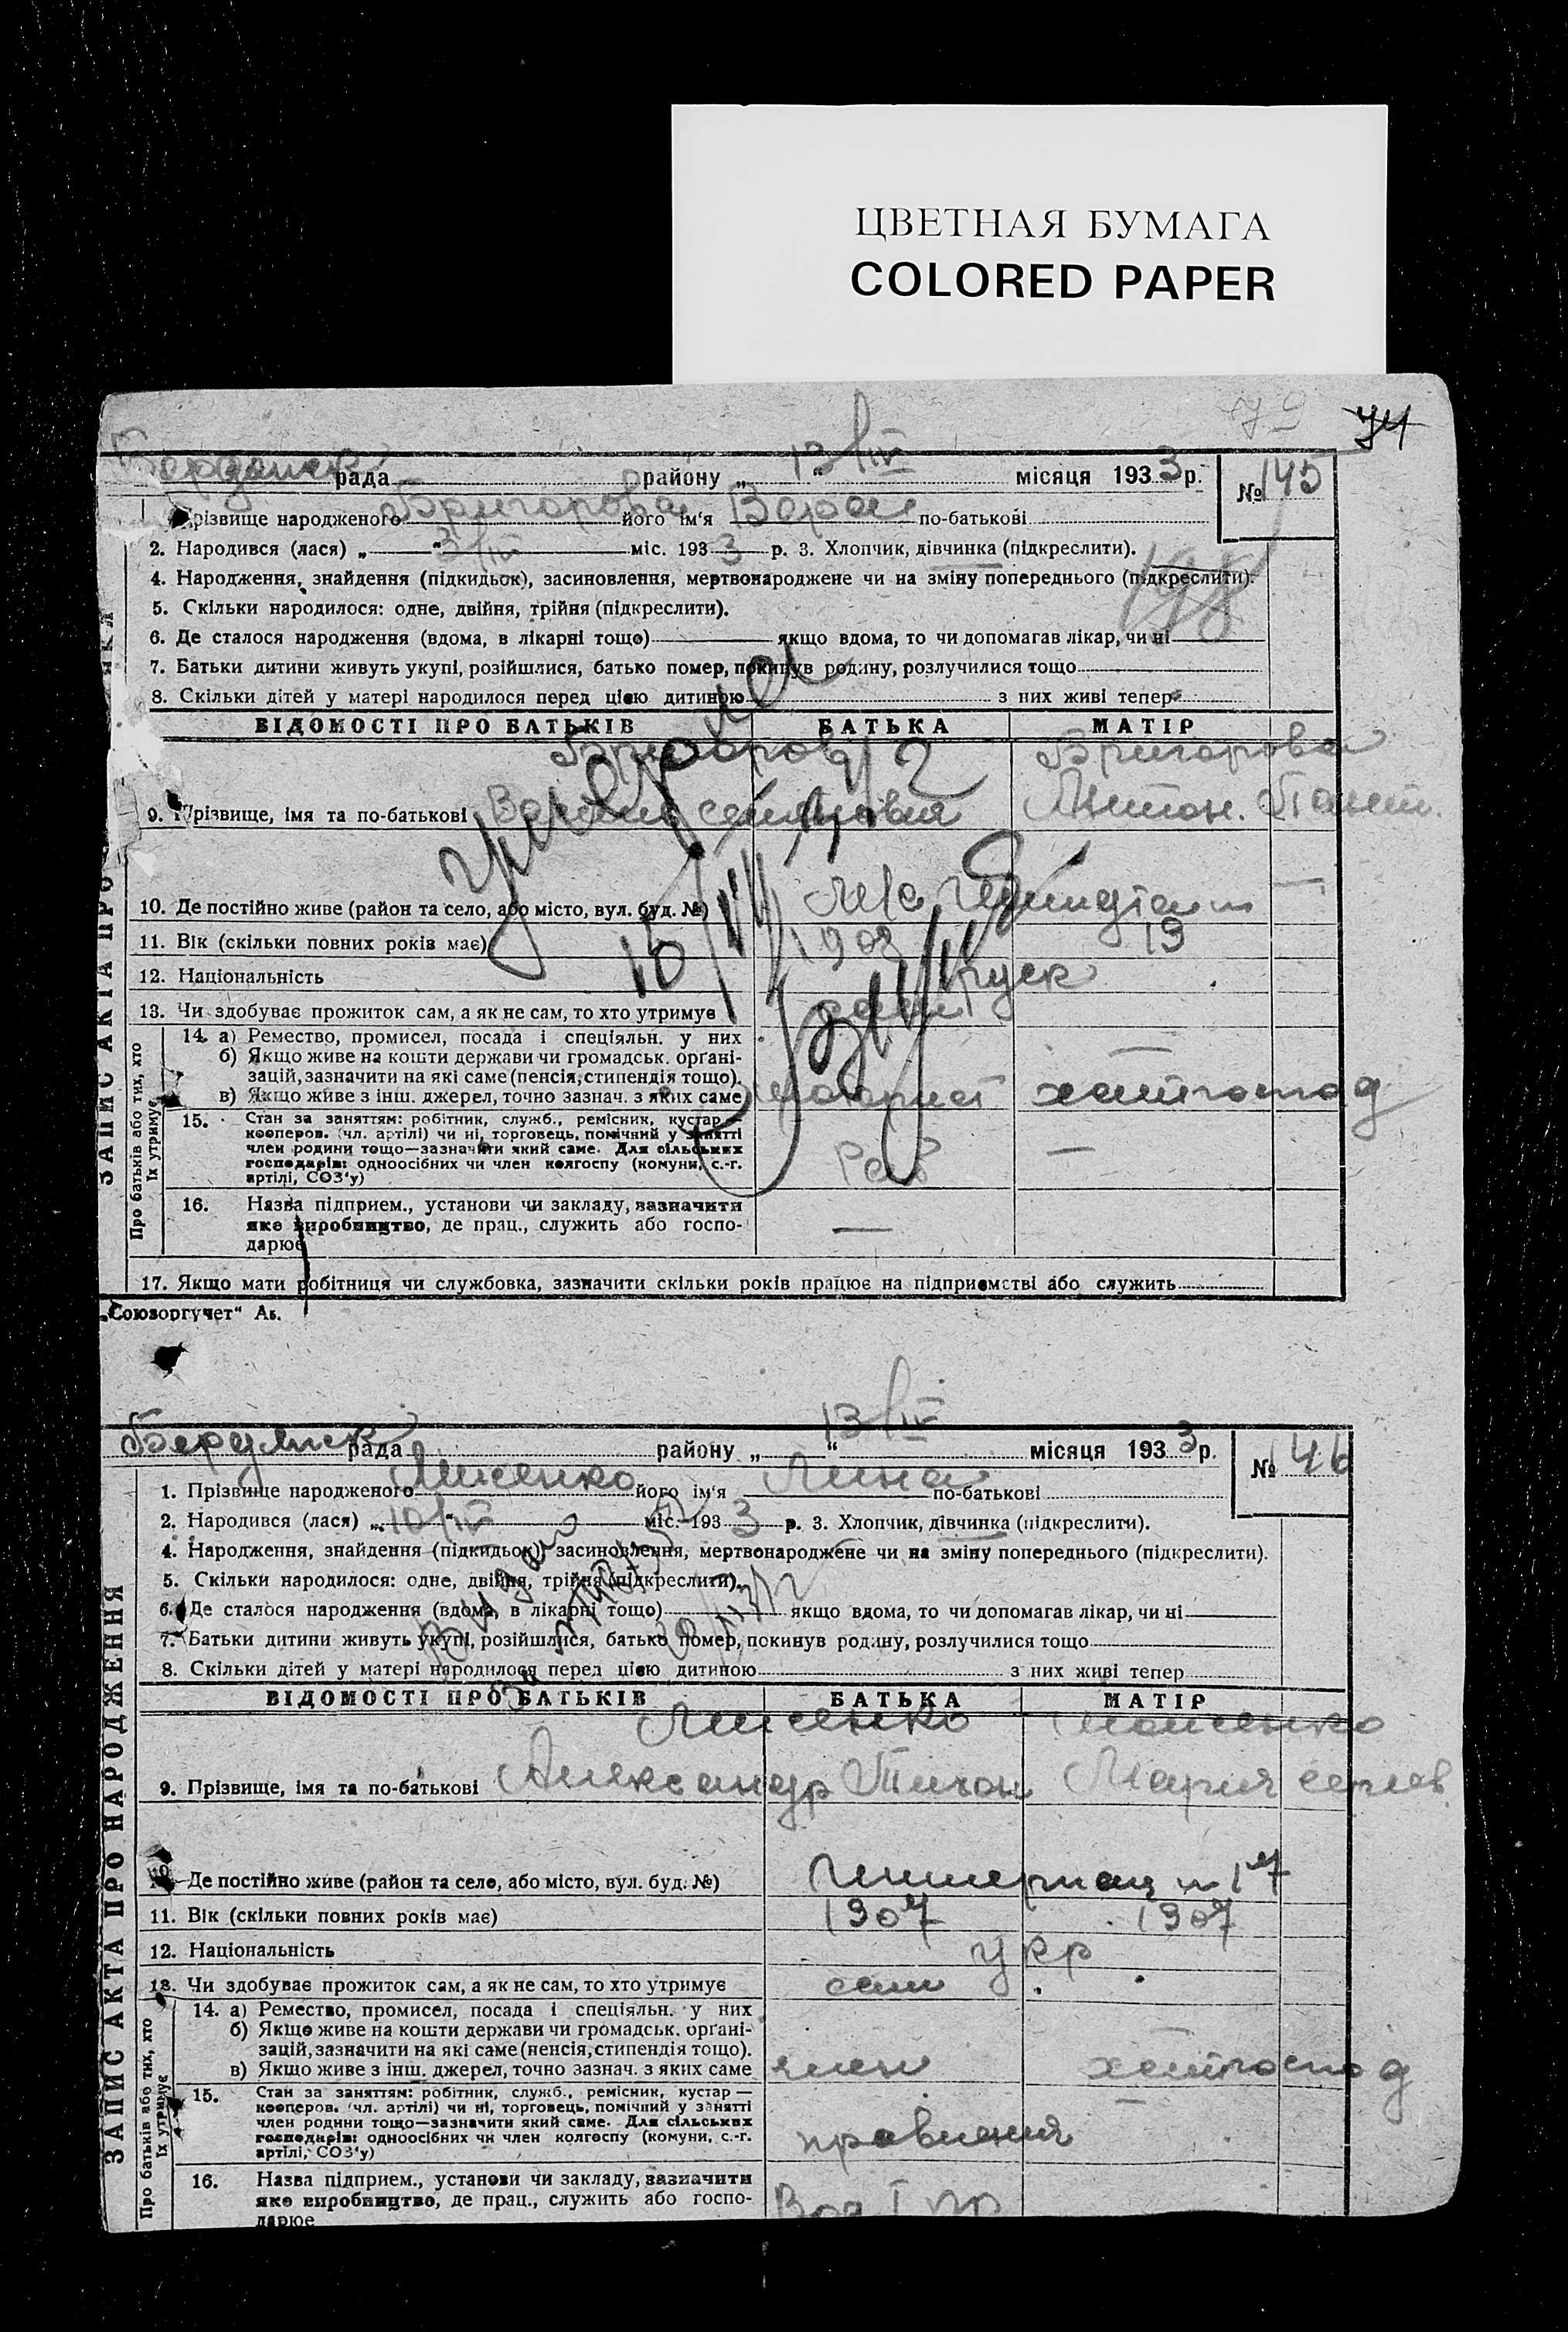 ЦВЕТНАЯ БУМАГА
COLORED PAPER
74
Бердянск рада района „ 13/IV “ місяця 1933 р. № 145
Прізвище народженого Григорова його ім'я Вера по-батькові
2. Народився (лася) „ 3/IV “ міс. 1933 р. 3. Хлопчик, дівчинка (підкреслити).
4. Народження, знайдення (підкидьок), засиновлення, мертвонароджене чи на зміну попереднього (підкреслити).
5. Скільки народилося: одне, двійня, трійня (підкреслити).
6. Де сталося народження (вдома, в лікарні тощо) якщо вдома, то чи допомагав лікар, чи ні
7. Батьки дитини живуть укупі, розійшлися, батько помер, покинув родину, розлучилися тощо
8. Скільки дітей у матері народилося перед цією дитиною з них живі тепер
ВІДОМОСТІ ПРО БАТЬКІВ БАТЬКА МАТІР
Григорова
9. Прізвище, імя та по-батькові
умерла
10. Де постійно живе (район та село, або місто, вул. буд. №)
11. Вік (скільки повних років має) 19
12. Національність руск
13. Чи здобуває прожиток сам, а як не сам, то хто утримує сам
ЗАПИС АКТА ПРО
Про батьків або тих, хто їх утримує
14. а) Ремество, промисел, посада і спеціяльн. у них
б) Якщо живе на кошти держави чи громадськ. орґані-
зацій, зазначити на які саме (пенсія, стипендія тощо).
в) Якщо живе з інш. джерел, точно зазнач. з яких саме домгоспод
15. Стан за заняттям: робітник, служб., ремісник, кустар —
кооперов. (чл. артілі) чи ні, торговець, помічний у занятті
член родини тощо—зазначити який саме. Для сільських
господарів: одноосібних чи член колгоспу (комуни, с.-г.
артілі, СОЗ'у) Раб —
16. Назва підприєм., установи чи закладу, зазначити
яке виробництво, де прац., служить або госпо-
дарює —
17. Якщо мати робітниця чи службовка, зазначити скільки років працює на підприємстві або служить
„Союзоргучет“ Ак.
Бердянск рада району „ 13/IV “ місяця 1933 р. № 146
1. Прізвище народженого Лисенко його ім'я Лина по-батькові
2. Народився (лася) „ 10/IV “ міс. 1933 р. 3. Хлопчик, дівчинка (підкреслити).
4. Народження, знайдення (підкидьок), засиновлення, мертвонароджене чи на зміну попереднього (підкреслити).
5. Скільки народилося: одне, двійня, трійня (підкреслити).
6. Де сталося народження (вдома, в лікарні тощо) якщо вдома, то чи допомагав лікар, чи ні
7. Батьки дитини живуть укупі, розійшлися, батько помер, покинув родину, розлучилися тощо
8. Скільки дітей у матері народилося перед цією дитиною з них живі тепер
ВІДОМОСТІ ПРО БАТЬКІВ БАТЬКА МАТІР
Лисенко Лисенко
9. Прізвище, імя та по-батькові Александр Тихон Мария
Де постійно живе (район та село, або місто, вул. буд. №) 17
11. Вік (скільки повних років має) 1907 1907
12. Національність укр
13. Чи здобуває прожиток сам, а як не сам, то хто утримує сам
ЗАПИС АКТА ПРО НАРОДЖЕННЯ
Про батьків або тих, хто їх утримує
14. а) Ремество, промисел, посада і спеціяльн. у них
б) Якщо живе на кошти держави чи громадськ. орґані-
зацій, зазначити на які саме (пенсія, стипендія тощо).
в) Якщо живе з інш. джерел, точно зазнач. з яких саме член домгоспод
15. Стан за заняттям: робітник, служб., ремісник, кустар —
кооперов. (чл. артілі) чи ні, торговець, помічний у занятті
член родини тощо—зазначити який саме. Для сільських
господарів: одноосібних чи член колгоспу (комуни, с.-г.
артілі, СОЗ'у) правления
16. Назва підприєм., установи чи закладу, зазначити
яке виробництво, де прац., служить або госпо-
дарює